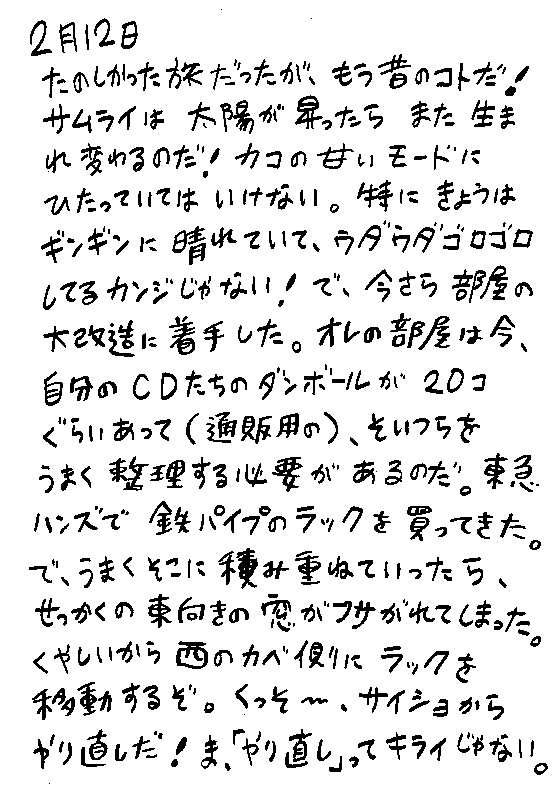 2月12日
たのしかった旅だったが、もう昔のコトだ!
サムライは 太陽が昇ったら また 生ま
れ変わるのだ! カコの甘いモードに
ひたっていては いけない。特に きょうは
ギンギンに 晴れていて、ウダウダゴロゴロ
してるカンジじゃない! で、今さら 部屋の
大改造に着手した。オレの部屋は今、
自分のCDたちのダンボールが 20コ
ぐらいあって(通販用の)、そいつらを
うまく 整理する必要が あるのだ。東急
ハンズで 鉄パイプのラックを 買ってきた。
で、うまくそこに 積み重ねていったら、
せっかくの 東向きの 窓がフサがれてしまった。
くやしいから 西のカベ側に ラックを
移動するぞ。くっそ〜、サイショから
やり直しだ! ま、「やり直し」ってキライじゃない。